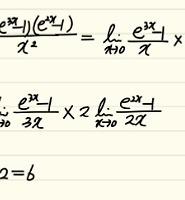 e^{3x}-1)(e^{2x}-1) / x² = lim x→0 e^{3x}-1 / x ×
lim x→0 e^{3x}-1 / 3x × 2 lim x→0 e^{2x}-1 / 2x
2=6